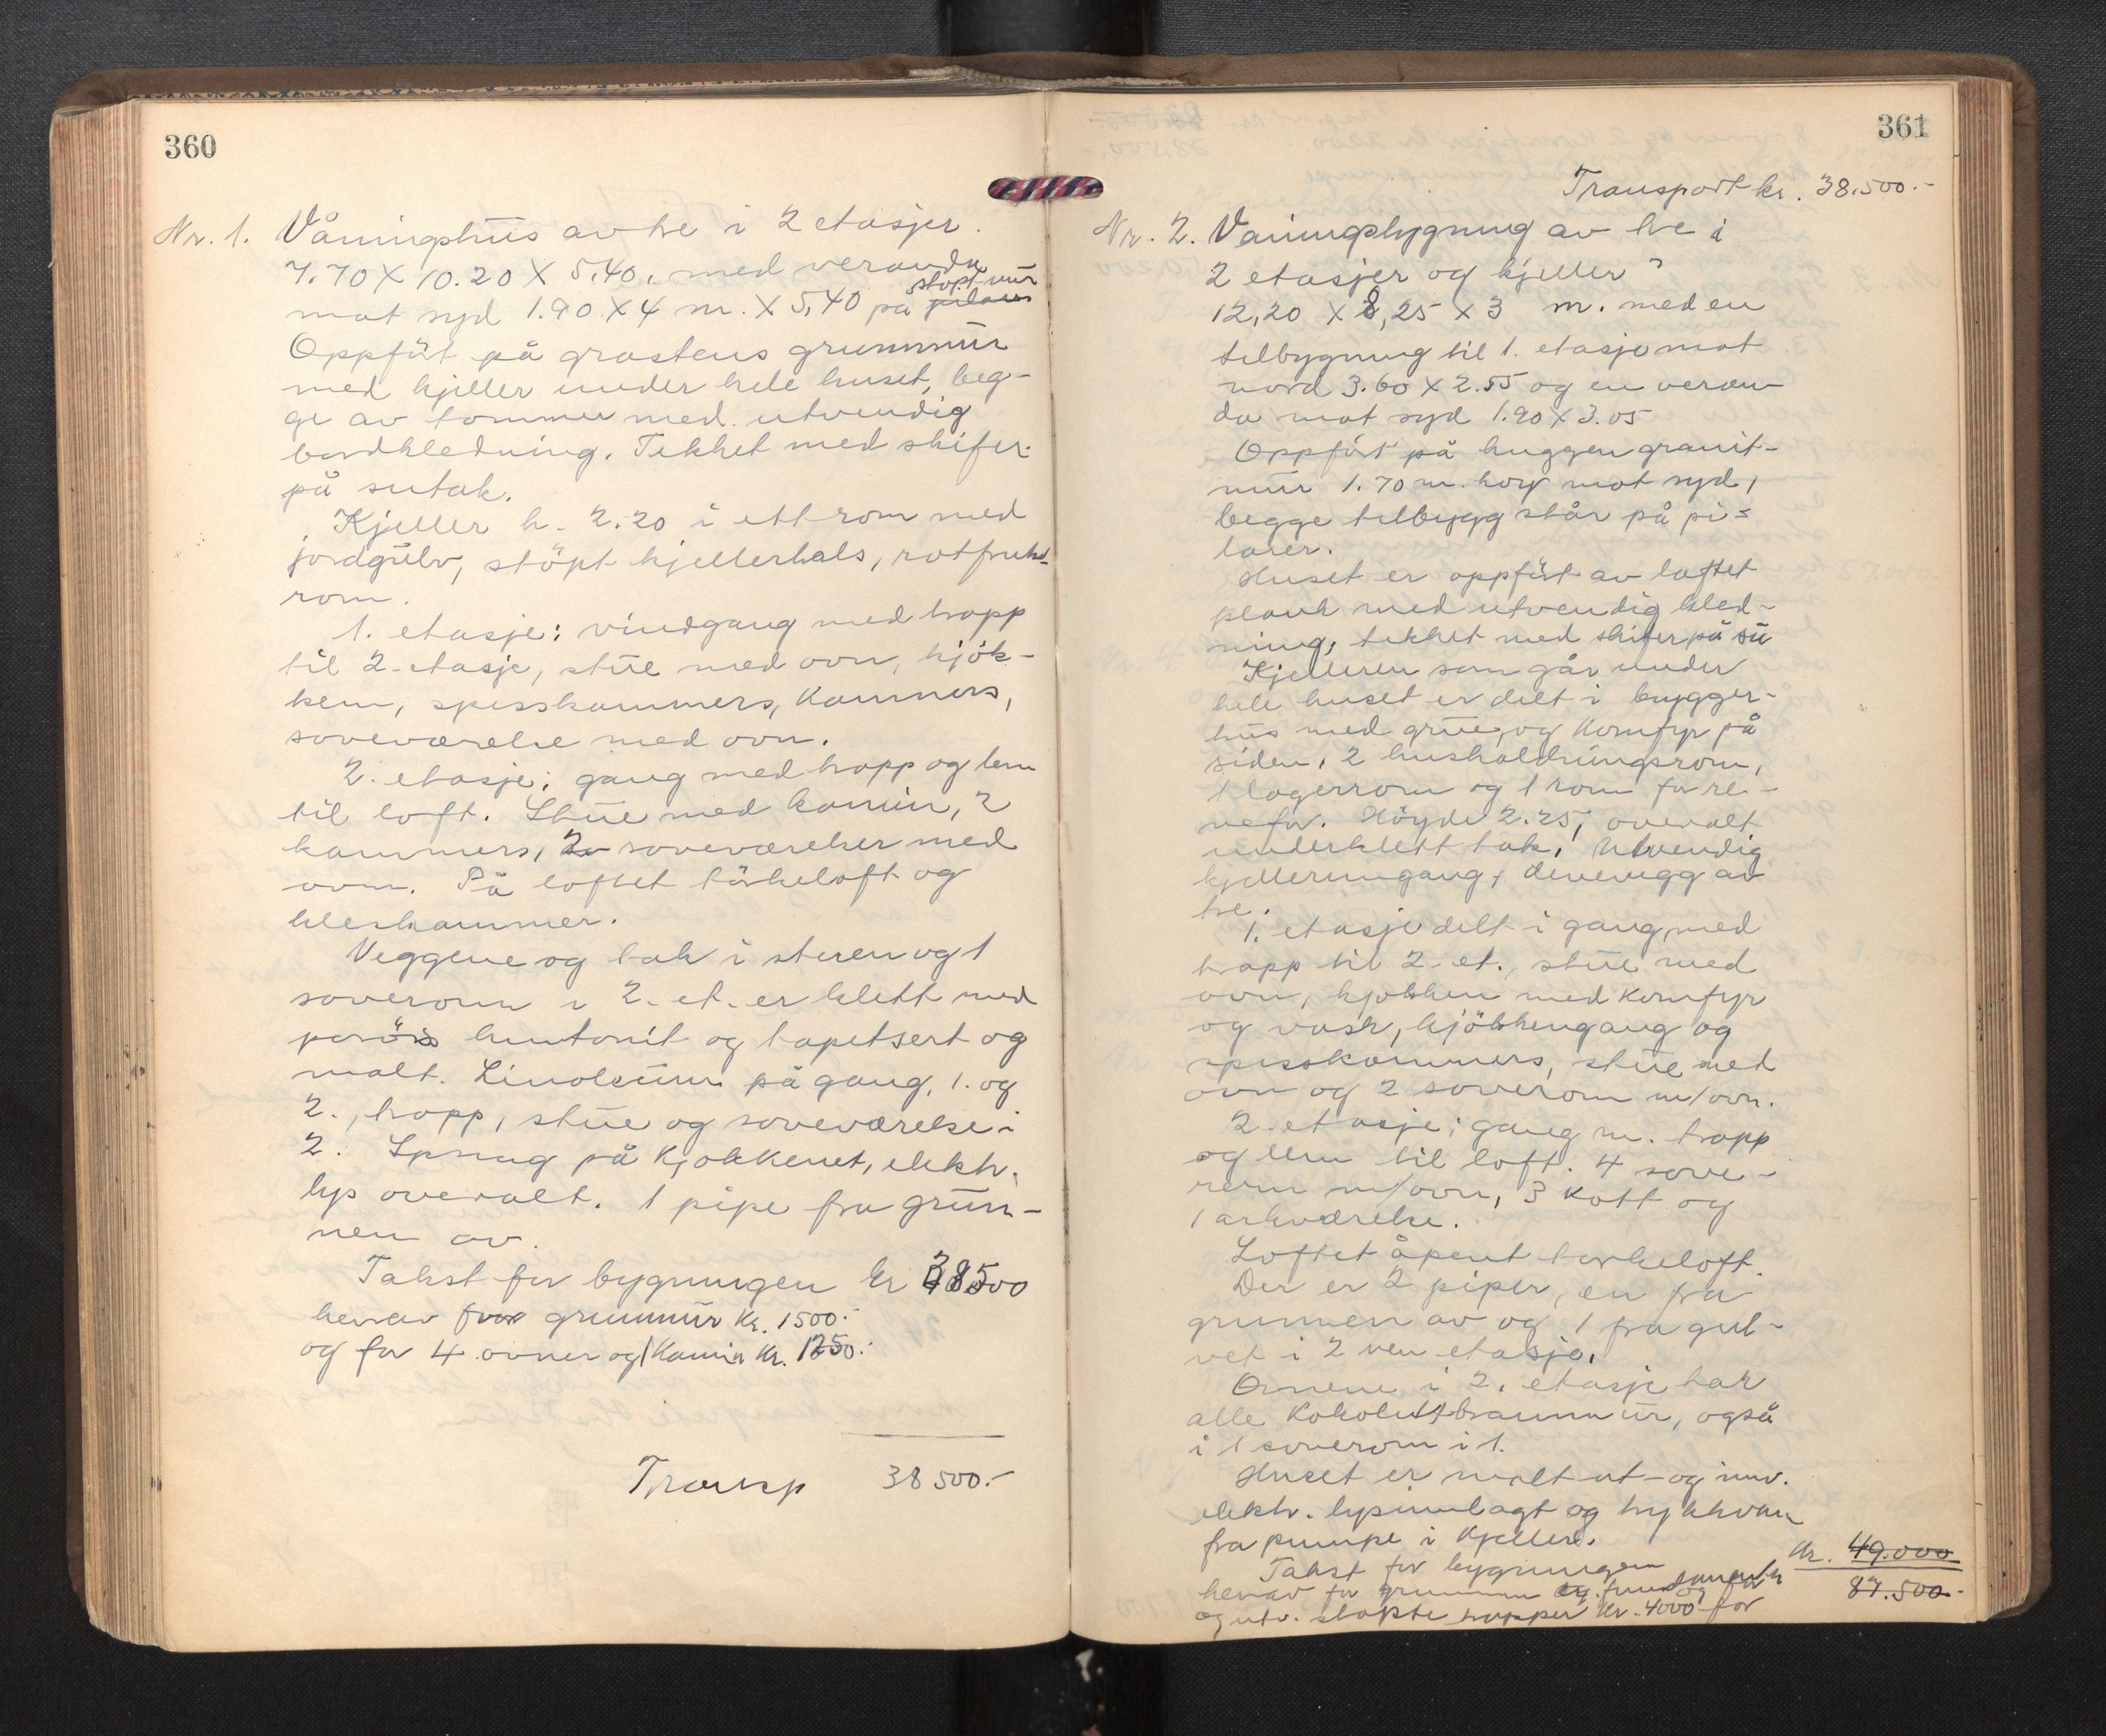 360
Nr. 1. Våningshus av tre i 2 etasjer.
7.70 X 10.20 X 5.40. med veranda
mot syd 1.90 X 4 m. X 5,40 på stöpt mur
Oppfört på grastens grunnmur
med kjeller under hele huset, beg-
ge av tømmer med utvendig
bordkledning. Tekket med skifer
på sutak.
Kjeller h. 2.20 i ett rom med
jordgulv, stöpt kjellerhals, rotfrukt-
rom.
1. etasje: vindgang med trapp
til 2. etasje, stue med ovn, kjök-
ken, spisskammers, kammers,
soveværelse med ovn.
2. etasje; gang med trapp og lem
til loft. Stue med kamin, 2
kammers, 2 soveværelser med
ovn. På loftet törkeloft og
kleskammer.
Veggene og tak i stuen og 1
soverom i 2. et. er klett med
porös huntonit og tapetsert og
malt. Linoleum på gang, 1. og
2., trapp, stue og soveværelse i
2. Spring på Kjøkkenet, elektr.
lys overalt. 1 pipe fra grun-
nen av.
Takst for bygningen kr 38500
herav for grunnmur Kr. 1500.-
og for 4 ovner og 1 Kamin Kr. 1250.-
Transp 38500.-
361
Transport kr. 38.500.-
Nr. 2. Våningsbygning av tre i
2 etasjer og kjeller
12,20 X 8,25 X 3 m. med en
tilbygning til 1. etasje mot
nord 3.60 X 2.55 og en veran-
da mot syd 1.90 X 3.05
Oppfört på huggen granit-
mur 1.70 m. høy mot syd,
begge tilbygg står på pi-
larer.
Huset er oppfört av laftet
plank med utvendig kled-
ning, tekket med skifer på su
Kjelleren som går under
hele huset er delt i brygger-
hus med grue, og Komfyr på
siden, 2 husholdningsrom,
1 lagerrom og 1 rom for
Höyde 2.25, overalt
underklett tak, Utvendig
kjellerinngang, av
tre.
1. etasje delt i gang med
trapp til 2. et., stue med
ovn, kjøkken med Komfyr
og vask, kjökkengang og
spisskammers, stue med
ovn og 2 soverom m/ovn.
2. etasje; gang m. trapp
og lem til loft. 4 sove-
rom m/ovn, 3 Kott og
1 arkværelse.
Loftet åpent tørkeloft.
Der er 2 piper, en fra
grunnen av og 1 fra gul-
vet i 2 nen etasje.
Ovnene i 2. etasje har
alle Kokolittbrannmur, også
i 1 soverom i 1.
Huset er malt ut- og innv.
elektr. lys innlagt og trykkvann
fra pumpe i Kjelleren.
Takst for bygningen Kr. 49.000
herav for grunnmur og fundamenter
og utv. støpte trapper Kr. 4000 og for
87.500.-